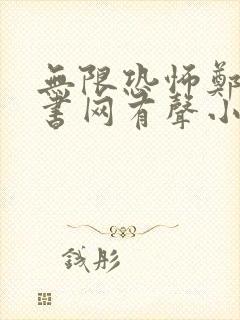 無限恐怖鄭
書网有聲小
钱彤